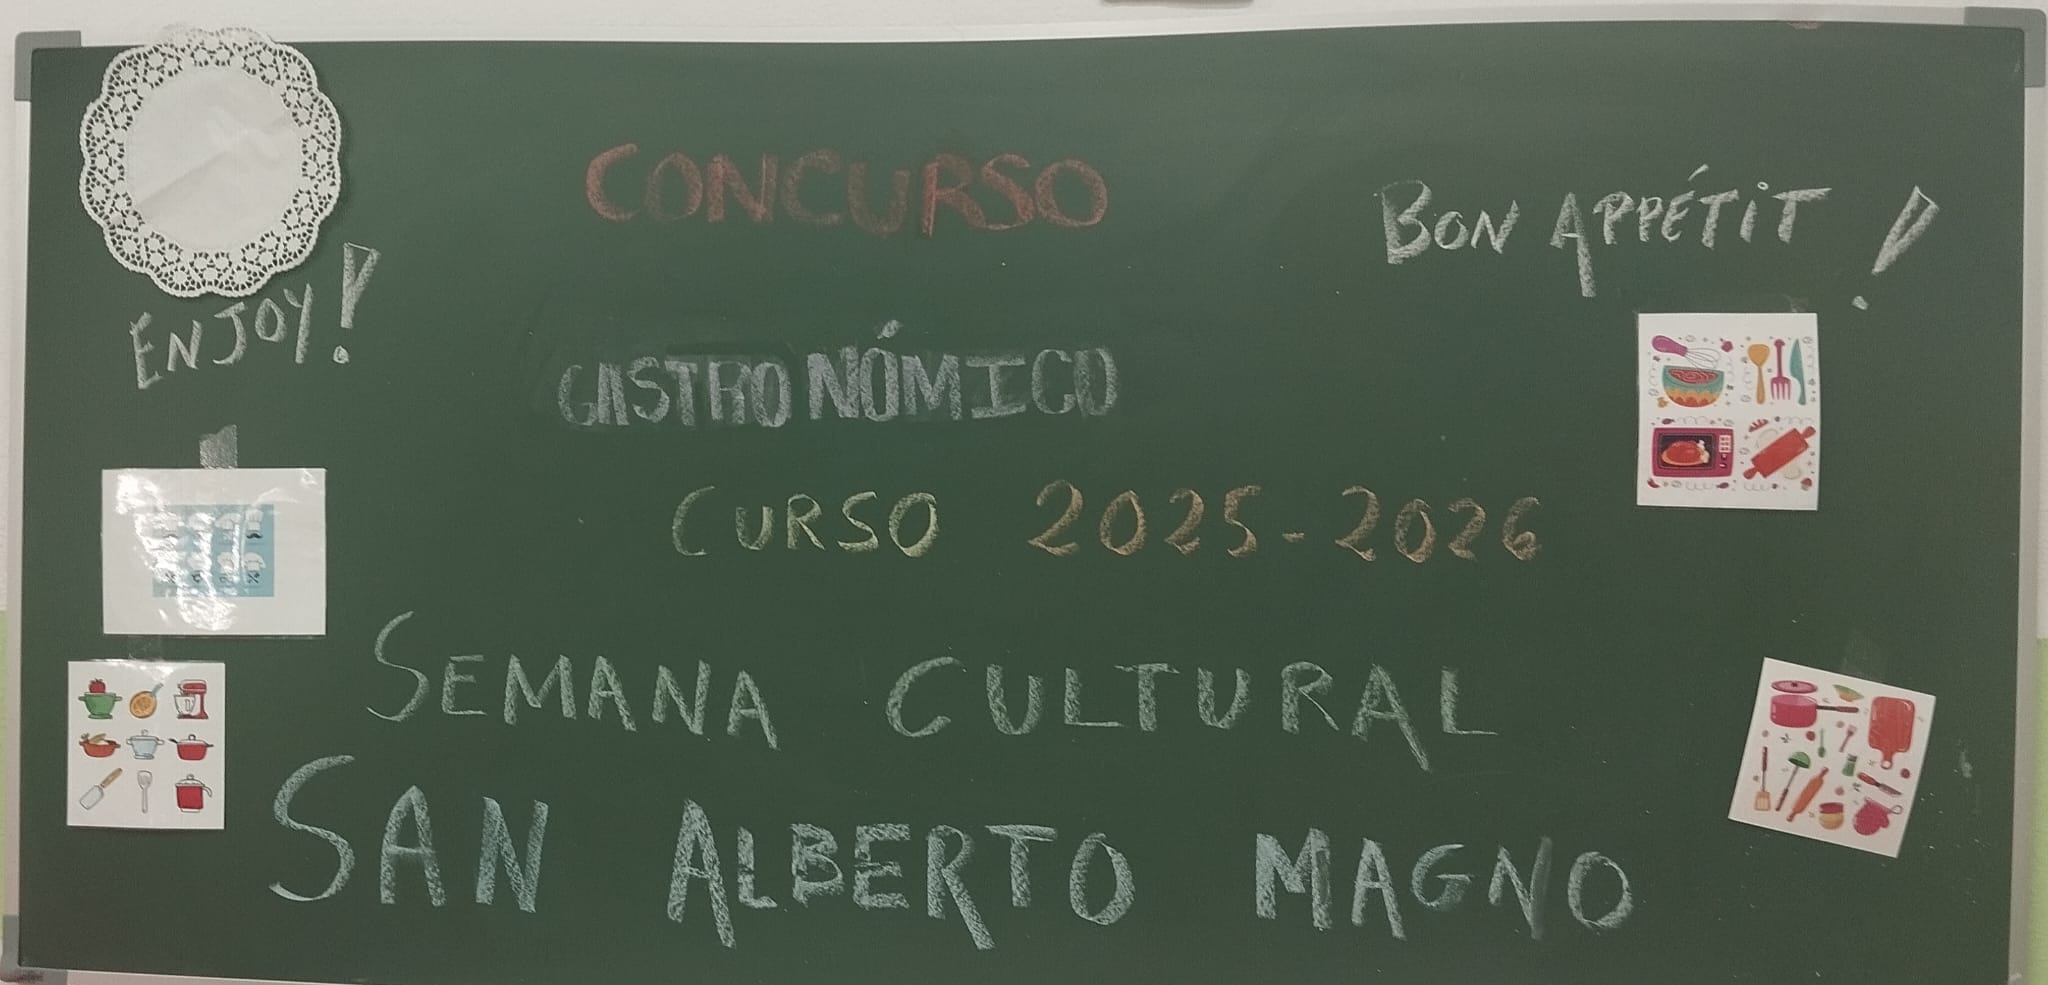 CONCURSO
BON APPÉTIT !
ENJOY!
GASTRONÓMICO
CURSO 2025-2026
SEMANA CULTURAL
SAN ALBERTO MAGNO